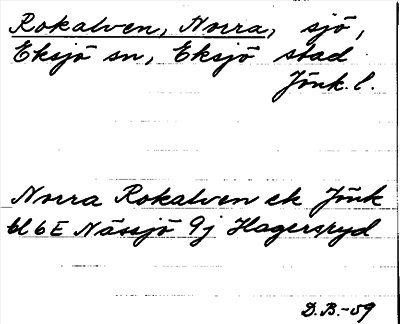 Rokalven, Norra, sjö,
Eksjö sn, Eksjö stad
Jönk. l.
Norra Rokalven ek Jönk
bl 6E Nässjö 9j Hagersryd
D.B.-59